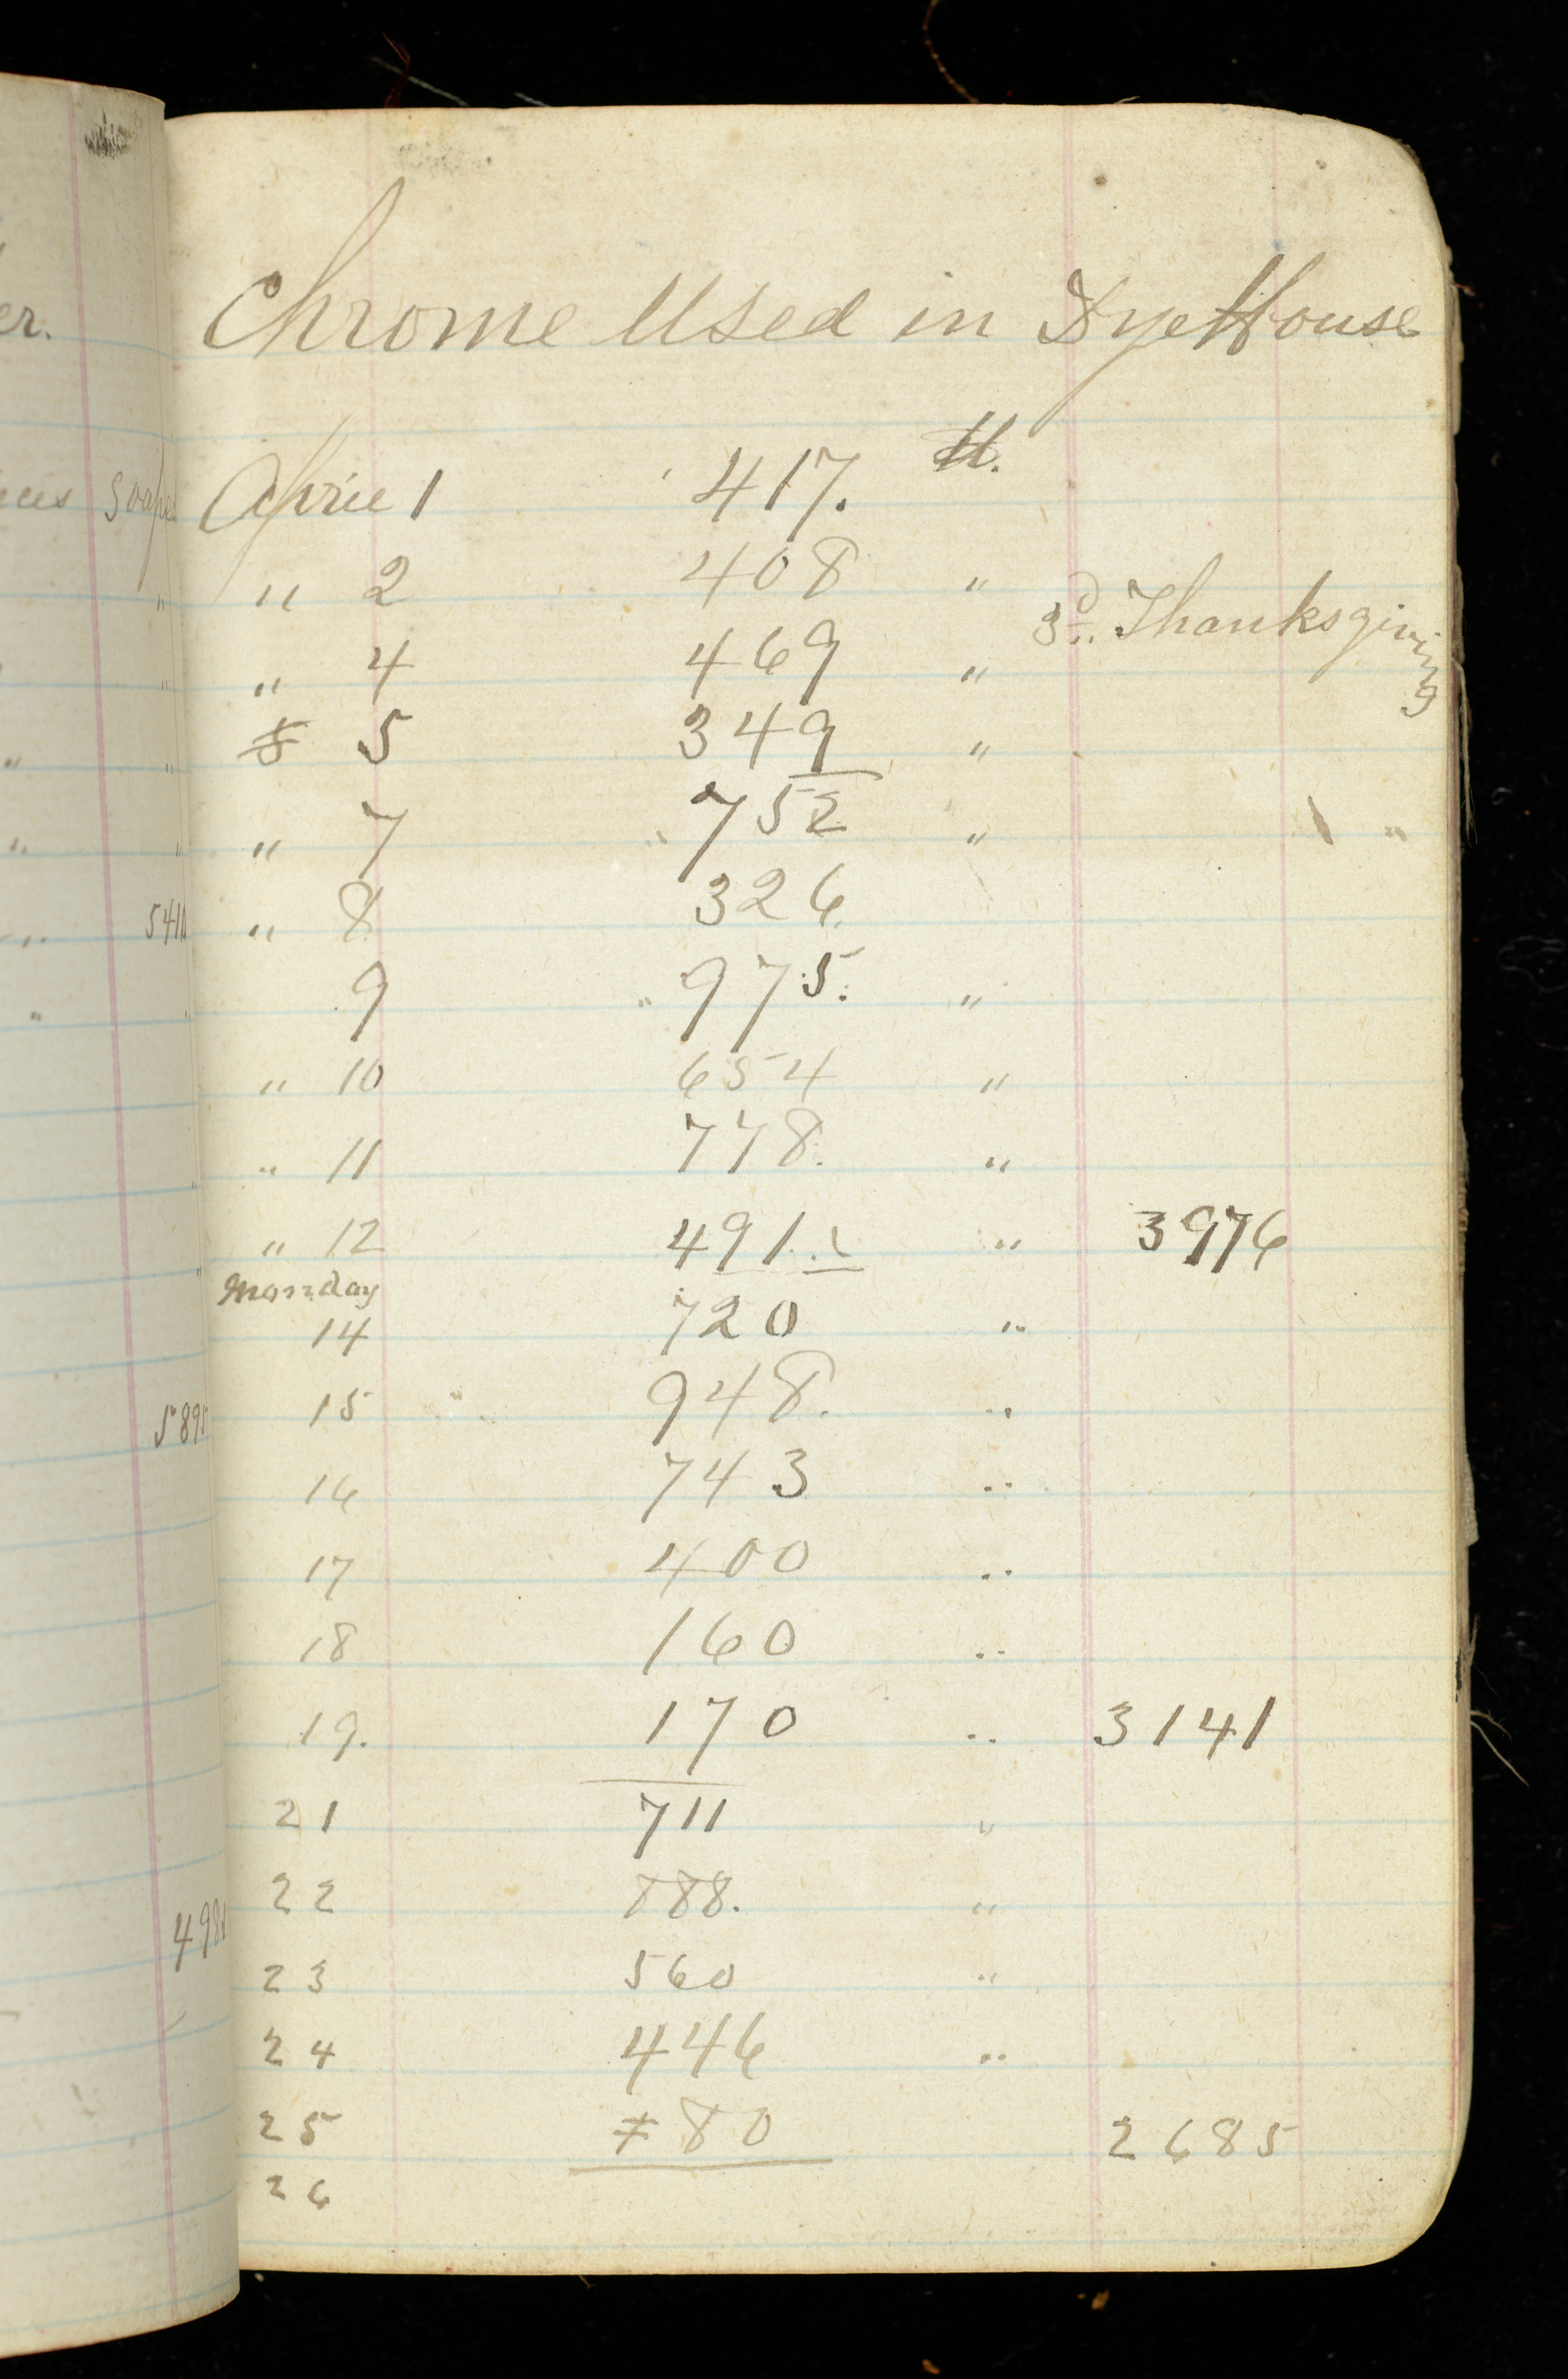 er.
Soaped
5410
5895
Chrome Used in DyeHouse
April 1 417. lb.
" 2 408 "
3d.. Thanksgiving
" 4 469 "
5 349 "
" 7 " 752 "
" 8 326.
9 " 975. "
" 10 654 "
" 11 778. "
" 12 491. " 3976
Monday
14 720 "
15 948. "
16 743 "
17 400 "
18 160 "
19. 170 " 3141
21 711 "
22 888. "
23 560 "
24 446 "
25 80 2685
26